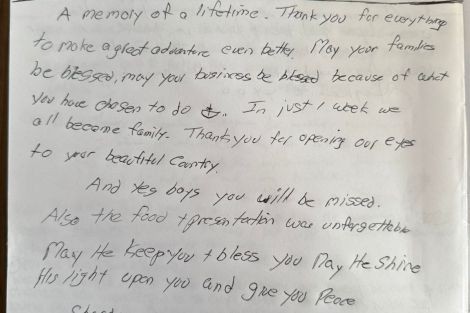 A memory of a lifetime. Thank you for everything
to make a great adventure even better. May your families
be blessed, may your business be blessed because of what
you have chosen to do. In just 1 week we
all became family. Thank you for opening our eyes
to your beautiful Country.
And yes boys you will be missed.
Also the food + presentation was unforgettable
May He Keep you + bless you May He Shine
His light upon you and give you Peace